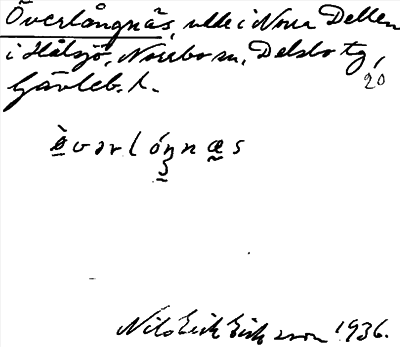 Överlångnäs, udde i Norra Dellen
i Hålsjö, Norrbo sn, Delsbo tg,
Gävleb. l. 20
ò̤vərlóŋnæ̤s
Nils Erik Eriksson 1936.